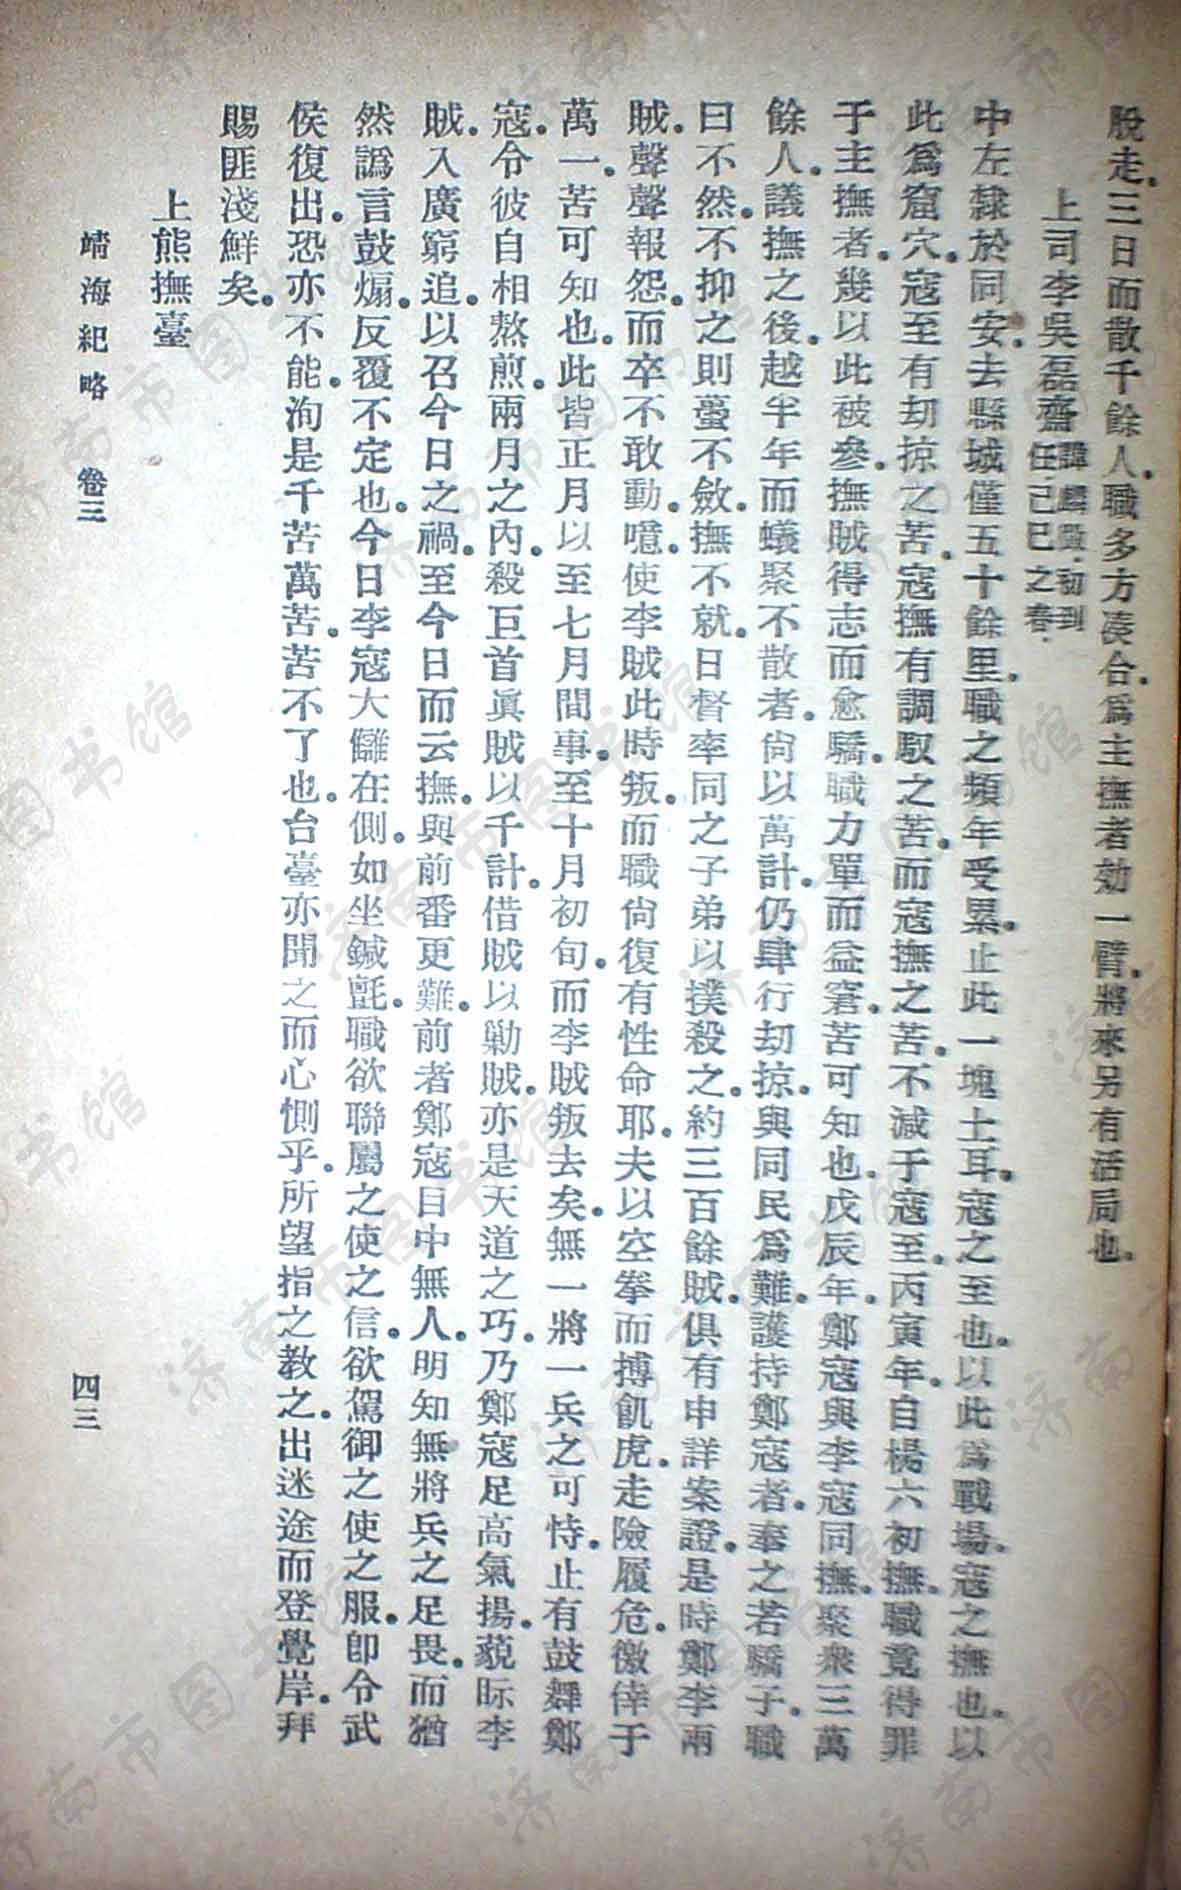 脫走。三日而散千餘人。職多方湊合。爲主撫者効一臂。將來另有活局也。
上司李吳磊齋 諱麟徵。初到
任。己巳之春。
中左隸於同安。去縣城僅五十餘里。職之頻年受累。止此一塊土耳。寇之至也。以此爲戰場。寇之撫也。以
此爲窟穴。寇至有刧掠之苦。寇撫有調馭之苦。而寇撫之苦。不減于寇至。丙寅年。自楊六初撫。職竟得罪
于主撫者。幾以此被參。撫賊得志而愈驕。職力單而益窘。苦可知也。戊辰年。鄭寇與李寇同撫。聚衆三萬
餘人。議撫之後。越半年而蟻聚不散者。尙以萬計。仍肆行刧掠。與同民爲難。護持鄭寇者。奉之若驕子。職
曰不然。不抑之則蠆不斂。撫不就。日督率同之子弟以撲殺之。約三百餘賊。俱有申詳案證。是時鄭李兩
賊。聲聲報怨。而卒不敢動。噫。使李賊此時叛。而職尙復有性命耶。夫以空拳而搏飢虎。走險履危。徼倖于
萬一。苦可知也。此皆正月以至七月間事。至十月初旬。而李賊叛去矣。無一將一兵之可恃。止有鼓舞鄭
寇。令彼自相熬煎。兩月之內。殺巨首眞賊以千計。借賊以勦賊。亦是天道之巧。乃鄭寇足高氣揚。藐眎李
賊。入廣窮追。以召今日之禍。至今日而云撫。與前番更難。前者鄭寇目中無人。明知無將兵之足畏。而猶
然譌言鼓煽。反覆不定也。今日李寇大讎在側。如坐鍼氈。職欲聯屬之使之信。欲駕御之使之服。卽令武
侯復出。恐亦不能。洵是千苦萬苦。苦不了也。台臺亦聞之而心惻乎。所望指之教之。出迷途而登覺岸。拜
賜匪淺鮮矣。
上熊撫臺
靖海紀略 卷三 四三
济南市图书馆